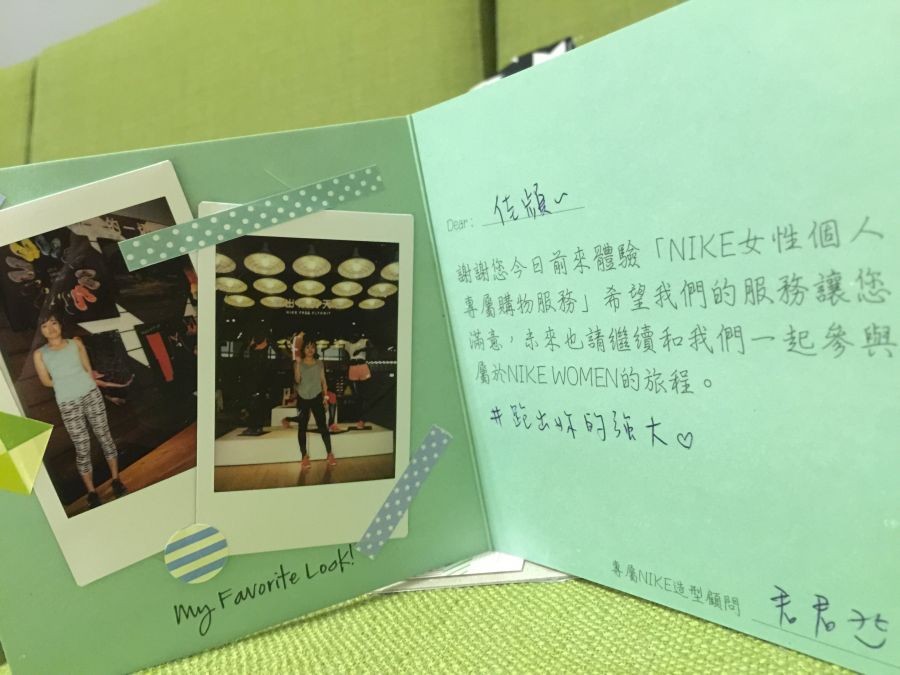 My Favorite Look!
Dear: 佳穎~
謝謝您今日前來體驗「NIKE女性個人
專屬購物服務」希望我們的服務讓您
滿意,未來也請繼續和我們一起參與
屬於NIKE WOMEN的旅程。
#跑出妳的強大♡
專屬NIKE造型顧問 君君
NIKE FREE FLYKNIT